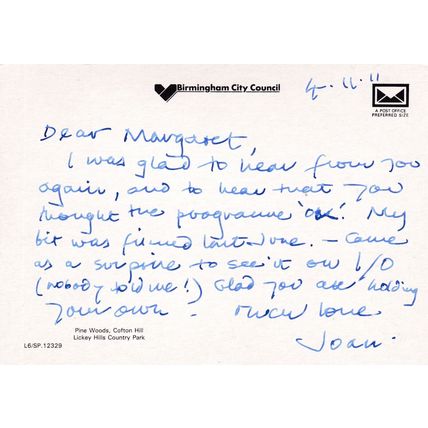 Birmingham City Council
4.11.11
A POST OFFICE
PREFERRED SIZE
Dear Margaret,
I was glad to hear from you
again, and to hear that you
thought the programme 'OK'. My
bit was filmed last June. – Came
as a surprise to see it on I/O
(nobody told me!) Glad you are holding
your own. much love
Joan.
Pine Woods, Cofton Hill
Lickey Hills Country Park
L6/SP.12329